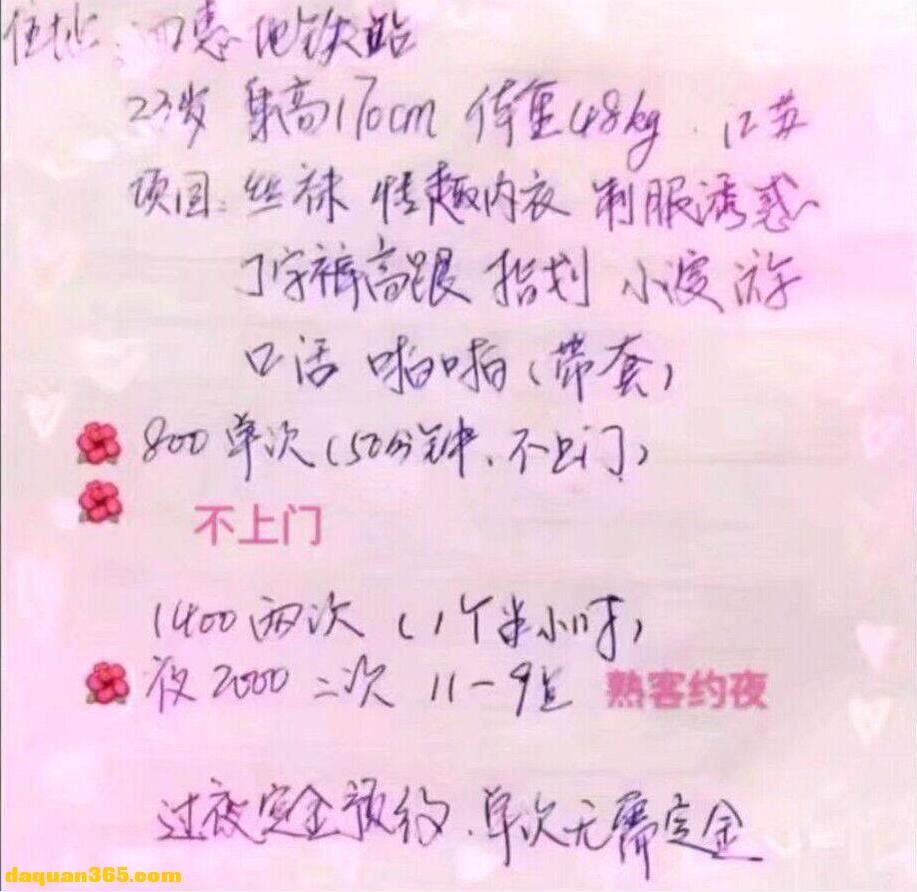 住址：四惠地铁站
23岁 身高170cm 体重48kg. 江苏
项目: 丝袜 情趣内衣 制服诱惑
丁字裤高跟 指划 小漫游
口活 啪啪(带套)
800单次(50分钟、不上门)
不上门
1400两次(1个半小时)
夜2000 二次 11-9点 熟客约夜
过夜定金预约、单次无需定金
daquan365.com